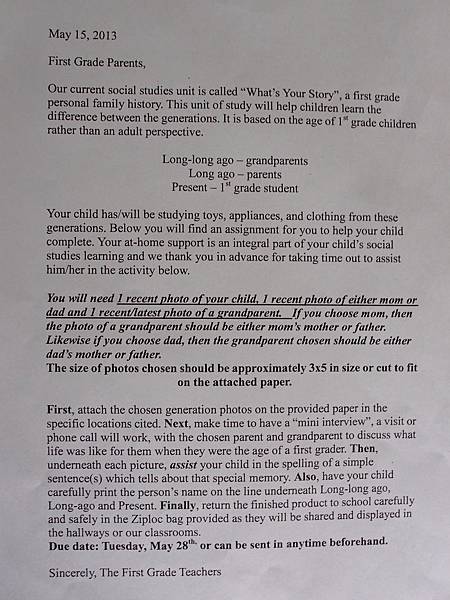 May 15, 2013
First Grade Parents,
Our current social studies unit is called "What's Your Story", a first grade
personal family history. This unit of study will help children learn the
difference between the generations. It is based on the age of 1st grade children
rather than an adult perspective.
Long-long ago – grandparents
Long ago – parents
Present – 1st grade student
Your child has/will be studying toys, appliances, and clothing from these
generations. Below you will find an assignment for you to help your child
complete. Your at-home support is an integral part of your child's social
studies learning and we thank you in advance for taking time out to assist
him/her in the activity below.
You will need 1 recent photo of your child, 1 recent photo of either mom or
dad and 1 recent/latest photo of a grandparent. If you choose mom, then
the photo of a grandparent should be either mom's mother or father.
Likewise if you choose dad, then the grandparent chosen should be either
dad's mother or father.
The size of photos chosen should be approximately 3x5 in size or cut to fit
on the attached paper.
First, attach the chosen generation photos on the provided paper in the
specific locations cited. Next, make time to have a "mini interview", a visit or
phone call will work, with the chosen parent and grandparent to discuss what
life was like for them when they were the age of a first grader. Then,
underneath each picture, assist your child in the spelling of a simple
sentence(s) which tells about that special memory. Also, have your child
carefully print the person's name on the line underneath Long-long ago,
Long-ago and Present. Finally, return the finished product to school carefully
and safely in the Ziploc bag provided as they will be shared and displayed in
the hallways or our classrooms.
Due date: Tuesday, May 28th, or can be sent in anytime beforehand.
Sincerely, The First Grade Teachers